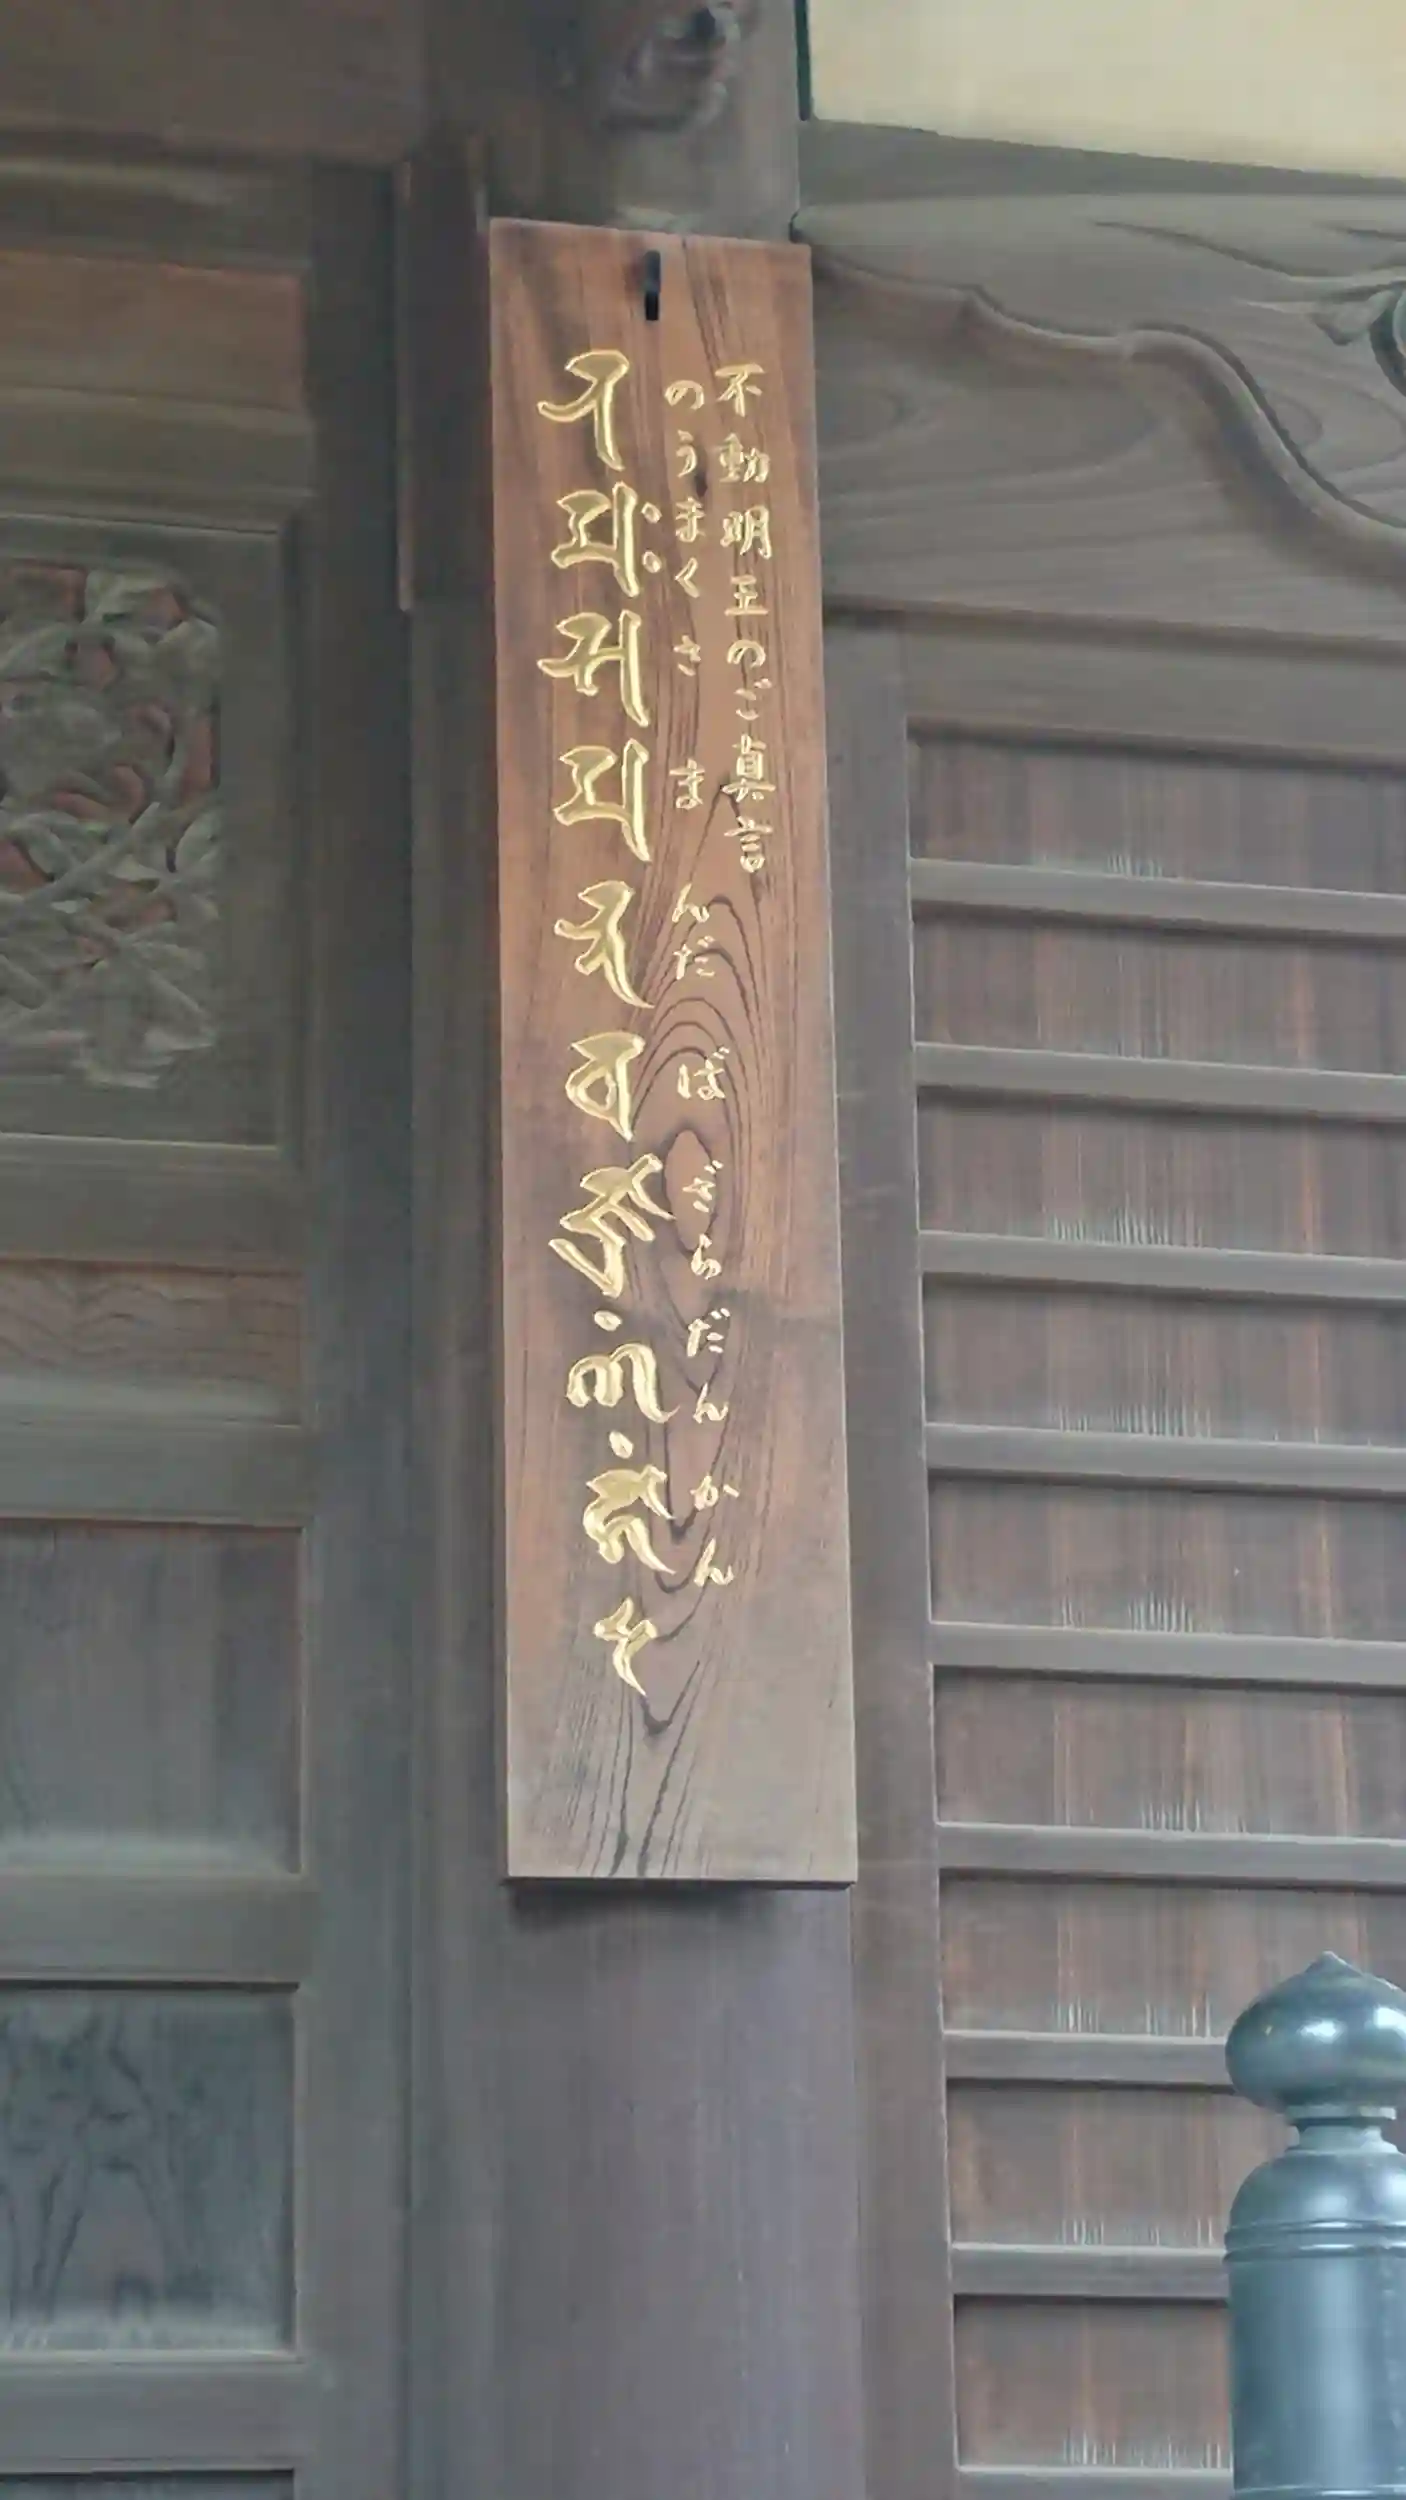 不動明王のご真言
のうまくさまんだばざらだんかん
𑖡𑖦𑖾𑖭𑖦𑖡𑖿𑖝𑖪𑖕𑖿𑖨𑖜𑖽𑖮𑖯𑖽